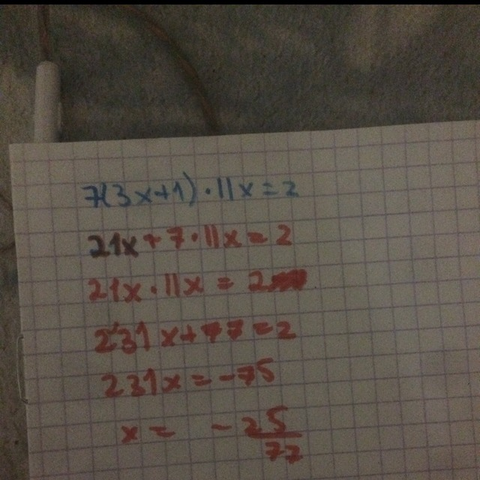 7(3x+1)·11x=2
21x+7·11x=2
21x·11x=2
231x+77=2
231x=-75
x= -25/77